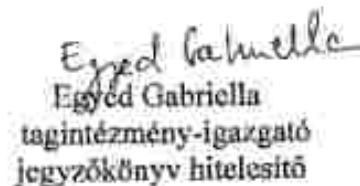 Egyed Gabriella
Egyed Gabriella
tagintézmény-igazgató
jegyzőkönyv hitelesítő